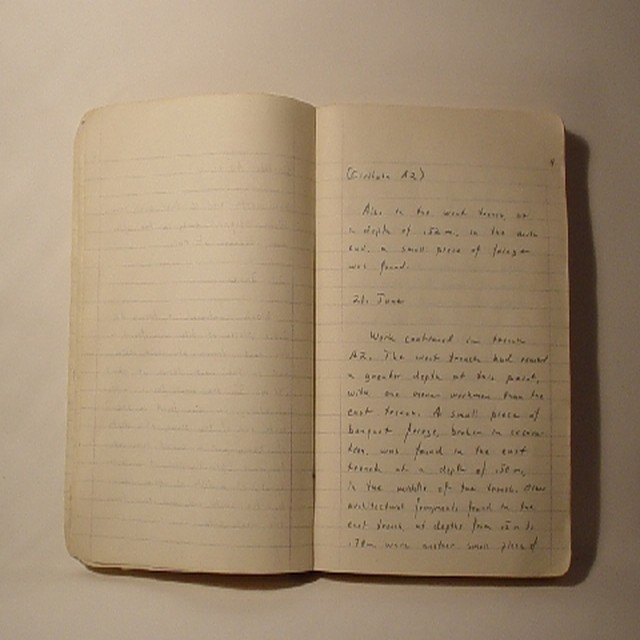 4
(Civitate A2)
Also in the west trench, at
a depth of .50m, in the north
end, a small piece of
was found.
21. June
Work continued in trench
A2. The west trench had reached
a greater depth at this point,
with one more workman than the
east trench. A small piece of
broken in
was found in the east
trench at a depth of .50m,
in the middle of the trench. Other
architectural fragments found in the
east trench, at depths from
.70m were another small piece of